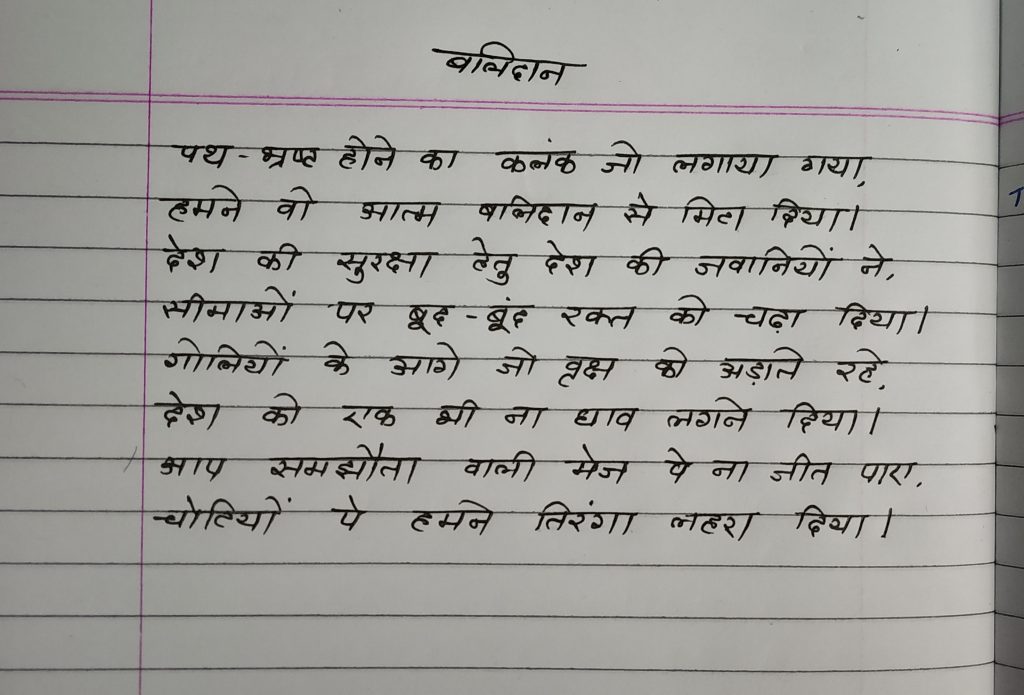 बलिदान
पथ-भ्रष्ट होने का कलंक जो लगाया गया,
हमने वो आत्म बलिदान से मिटा दिया।
देश की सुरक्षा हेतु देश की जवानियों ने,
सीमाओं पर बूंद-बूंद रक्त को चढ़ा दिया।
गोलियों के आगे जो वृक्ष को अड़ाते रहे,
देश को एक भी ना घाव लगने दिया।
आप समझौता वाली मेज पे ना जीत पाए,
चोटियों पे हमने तिरंगा लहरा दिया।